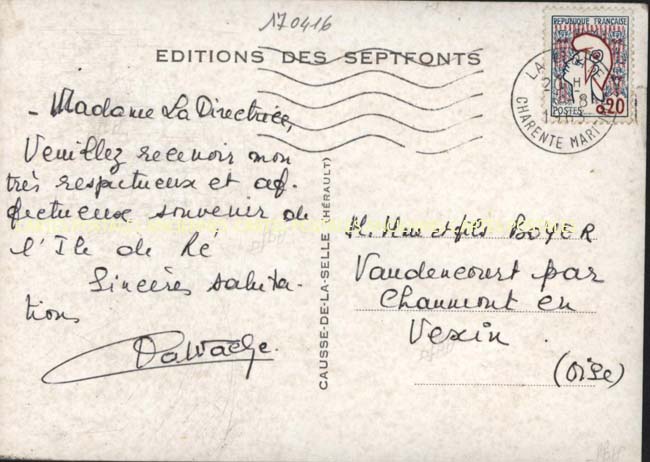 170416
EDITIONS DES SEPTFONTS
REPUBLIQUE FRANÇAISE
0,20
POSTES
LA
CHARENTE MARIT
- Madame La Directrice,
Veuillez recevoir mon
très respectueux et af-
fectueux souvenir de
l'Ile de Ré
Sincères saluta-
tions
CAUSSE-DE-LA-SELLE (HÉRAULT)
M. Mme et fils BOYER
Vaudencourt par
Chaumont en
Vexin
(Oise)